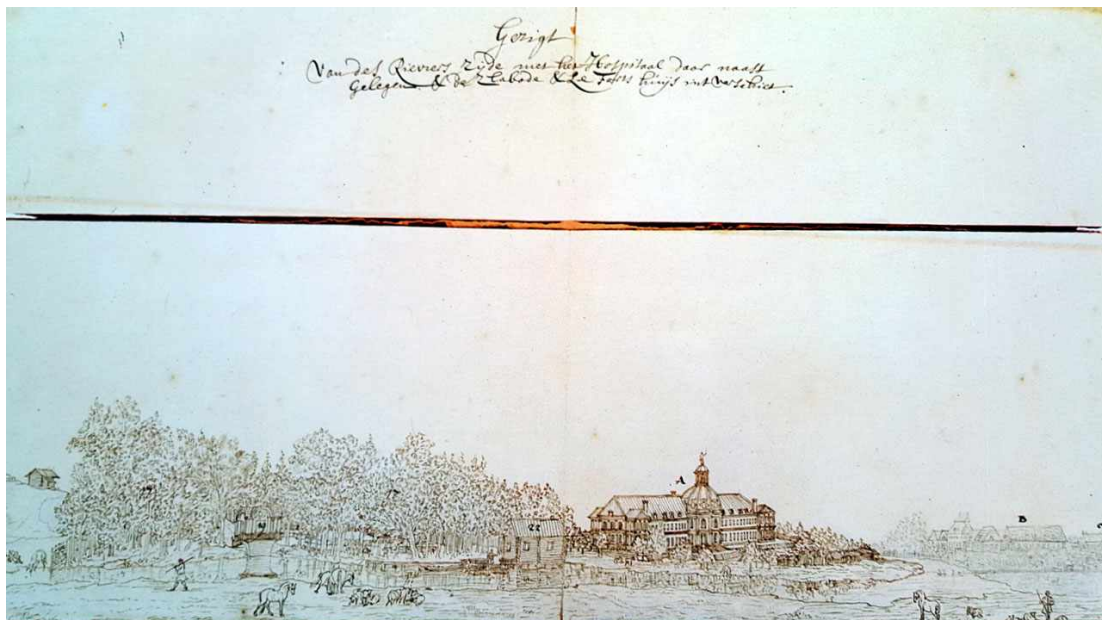 Gezigt
Van des Rieviers Zijde met het Hospitaal daar naast
Gelegen & de Slabode & huijs int verschiet.
A
B
22